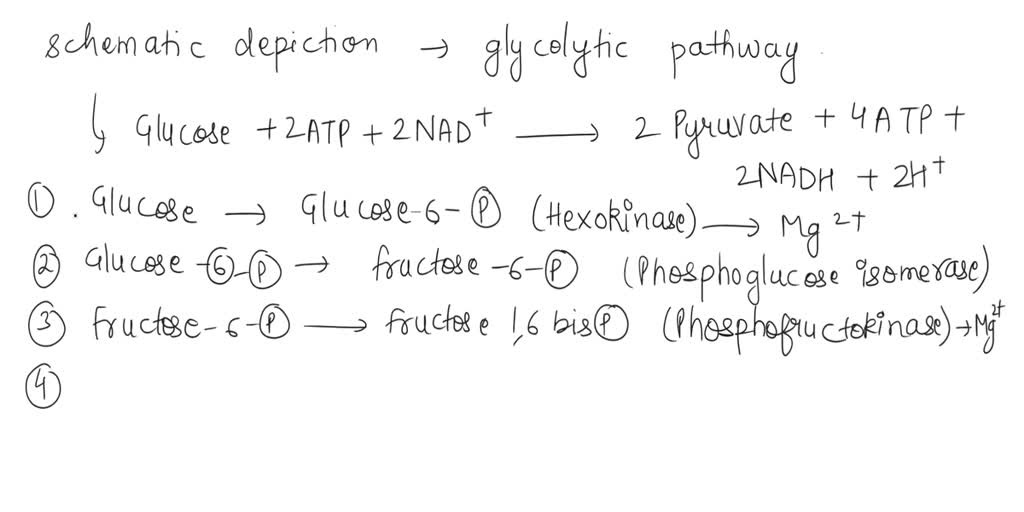 schematic depiction → glycolytic pathway
↳ Glucose + 2ATP + 2NAD⁺ ⟶ 2 Pyruvate + 4ATP +
2NADH + 2H⁺
① . Glucose → Glucose-6-Ⓟ (Hexokinase) ⟶ Mg²⁺
② Glucose-⑥-Ⓟ → fructose-6-Ⓟ (Phosphoglucose isomerase)
③ Fructose-6-Ⓟ ⟶ fructose 1,6 bisⓅ (Phosphofructokinase) → Mg²⁺
④